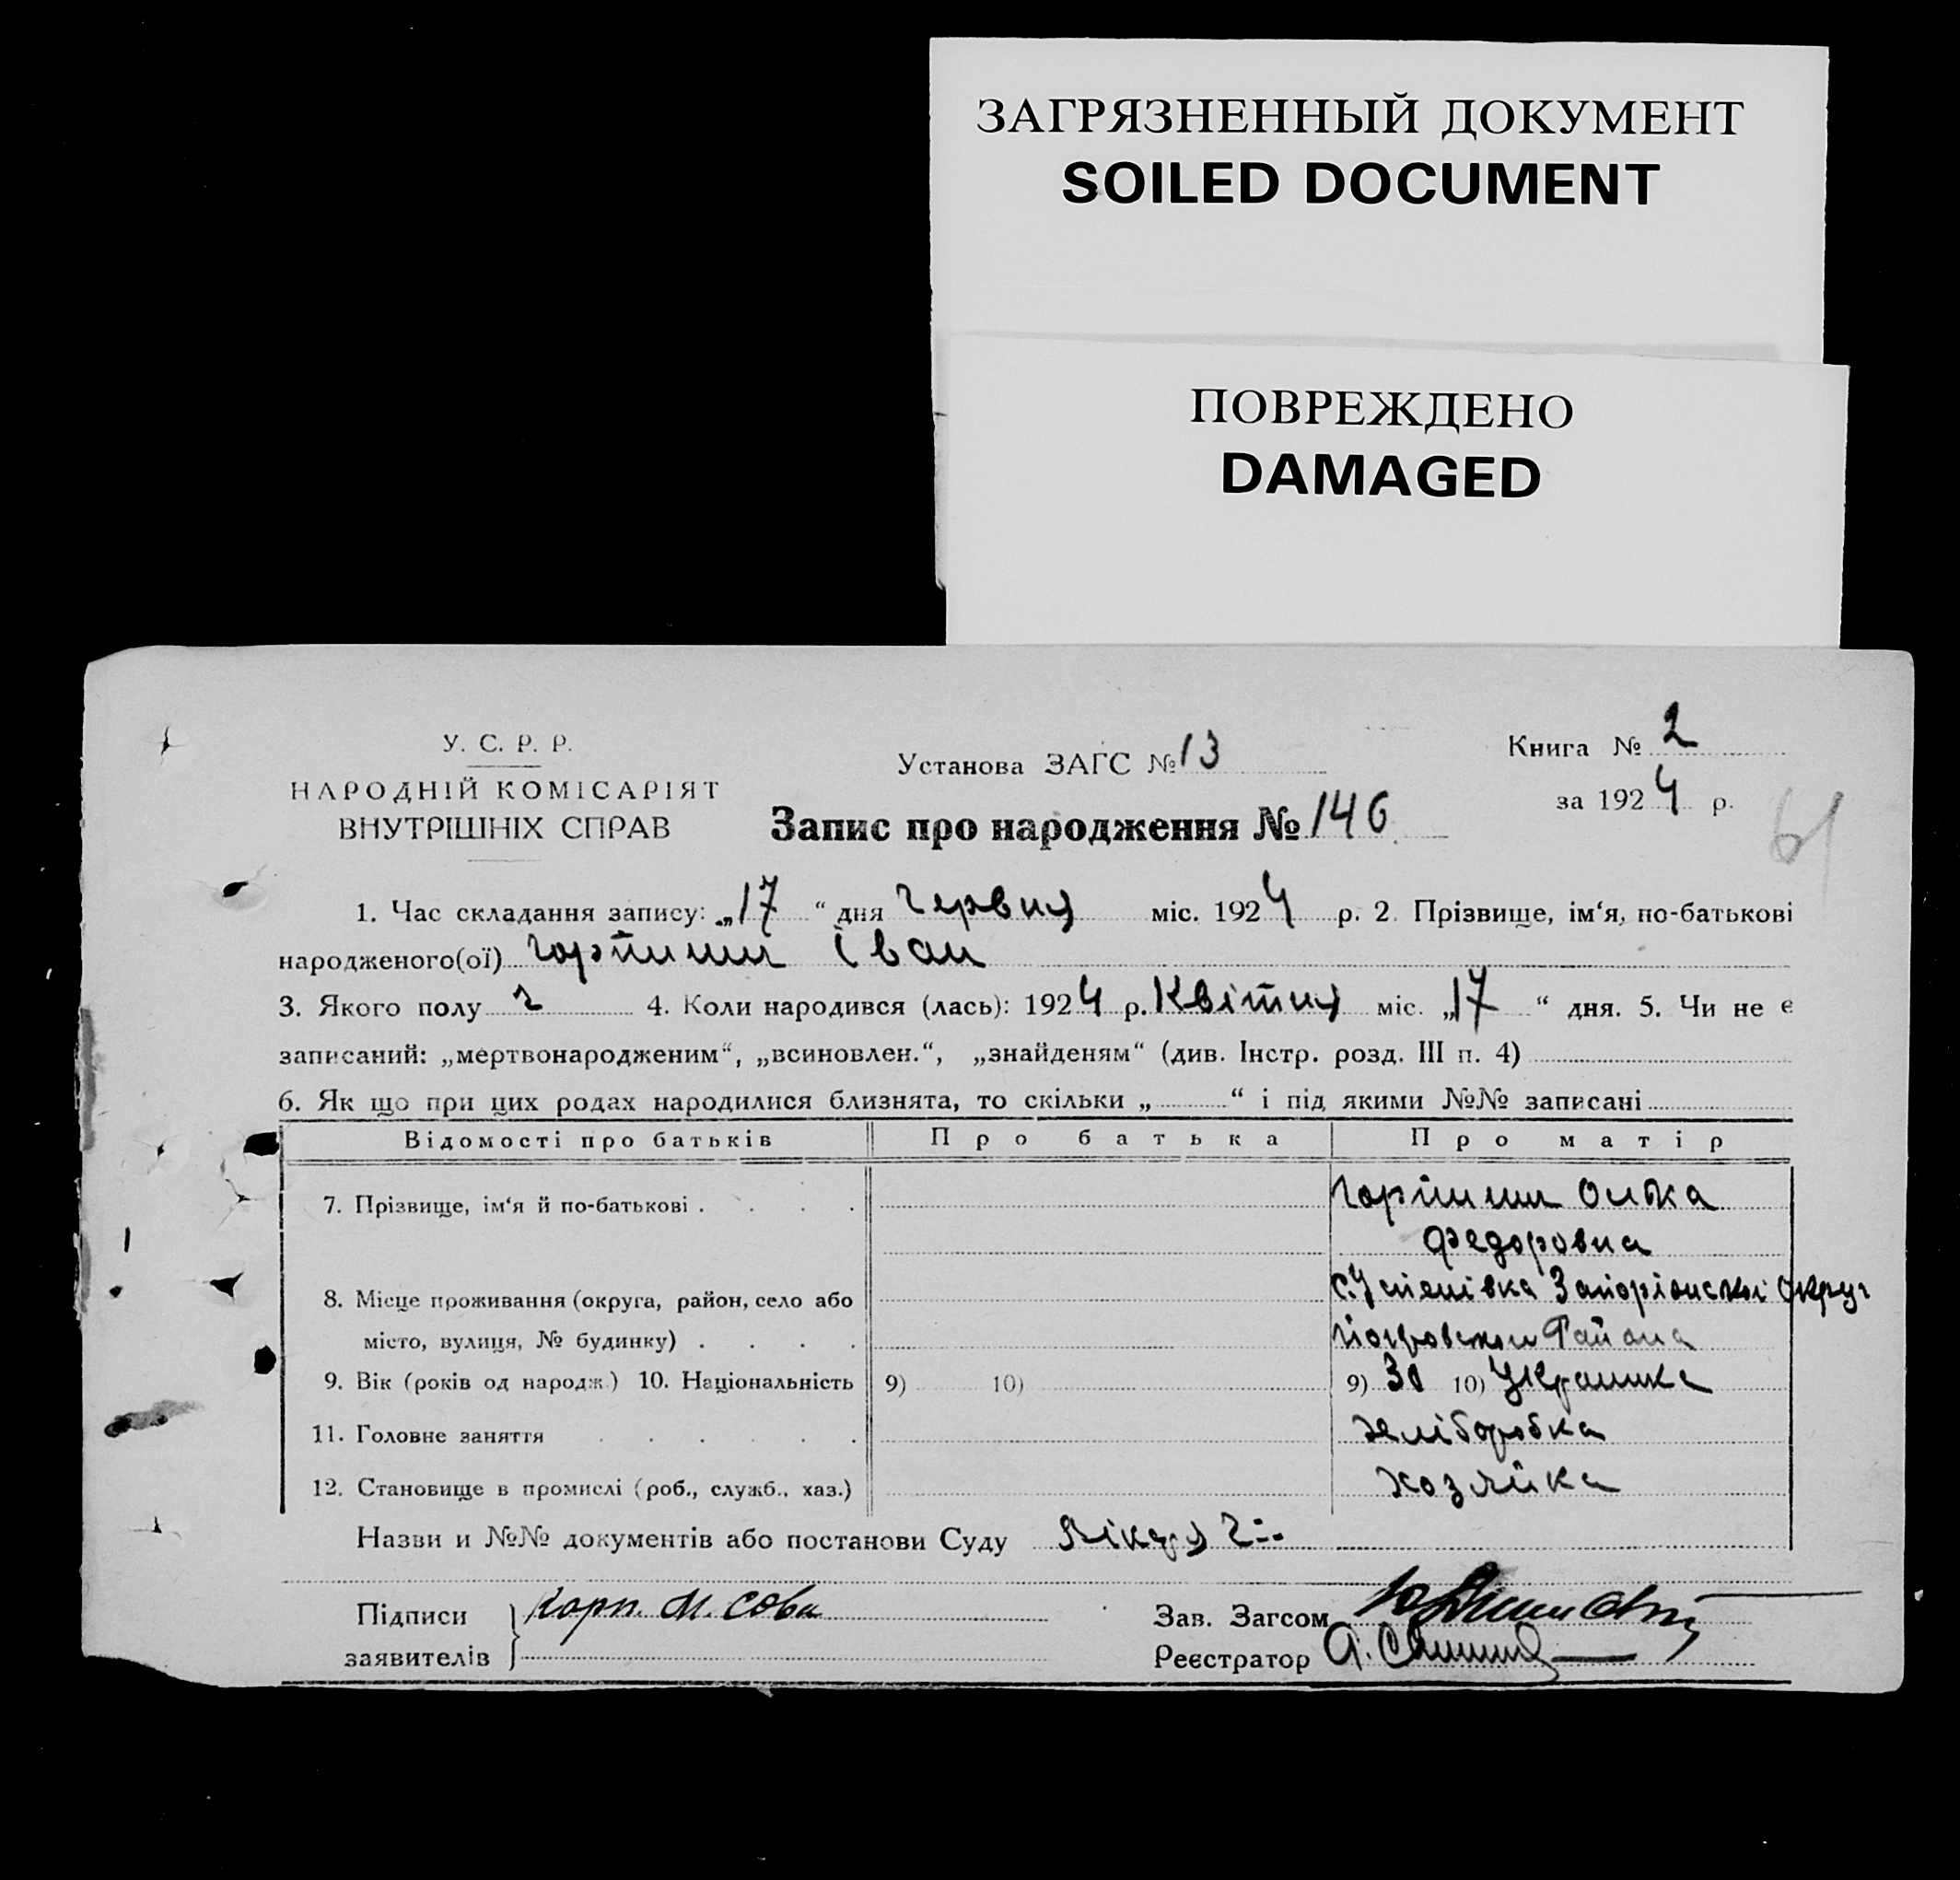 ЗАГРЯЗНЕННЫЙ ДОКУМЕНТ
SOILED DOCUMENT
ПОВРЕЖДЕНО
DAMAGED
У. С. Р. Р.
НАРОДНІЙ КОМІСАРІЯТ
ВНУТРІШНІХ СПРАВ
Установа ЗАГС № 13
Книга № 2
за 1924 р.
Запис про народження № 146
61
1. Час складання запису: „17“ дня червня міс. 1924 р. 2. Прізвище, ім‘я, по-батькові
народженого(ої) Іван
3. Якого полу ч 4. Коли народився (лась): 1924 р. Квітня міс. „17“ дня. 5. Чи не є
записаний: „мертвонародженим“, „всиновлен.“, „знайденям“ (див. Інстр. розд. III п. 4)
6. Як що при цих родах народилися близнята, то скільки „ “ і під якими №№ записані
Відомості про батьків Про батька Про матір
7. Прізвище, ім‘я й по-батькові Олька
Федоровна
8. Місце проживання (округа, район, село або с. Успенівка Запоріжської Округ
місто, вулиця, № будинку) Района
9. Вік (років од народж.) 10. Національність 9) 10) 9) 30 10) Українка
11. Головне заняття хліборобка
12. Становище в промислі (роб., служб., хаз.) хозяйка
Назви и №№ документів або постанови Суду
Підписи М. Сова Зав. Загсом
заявителів Реєстратор